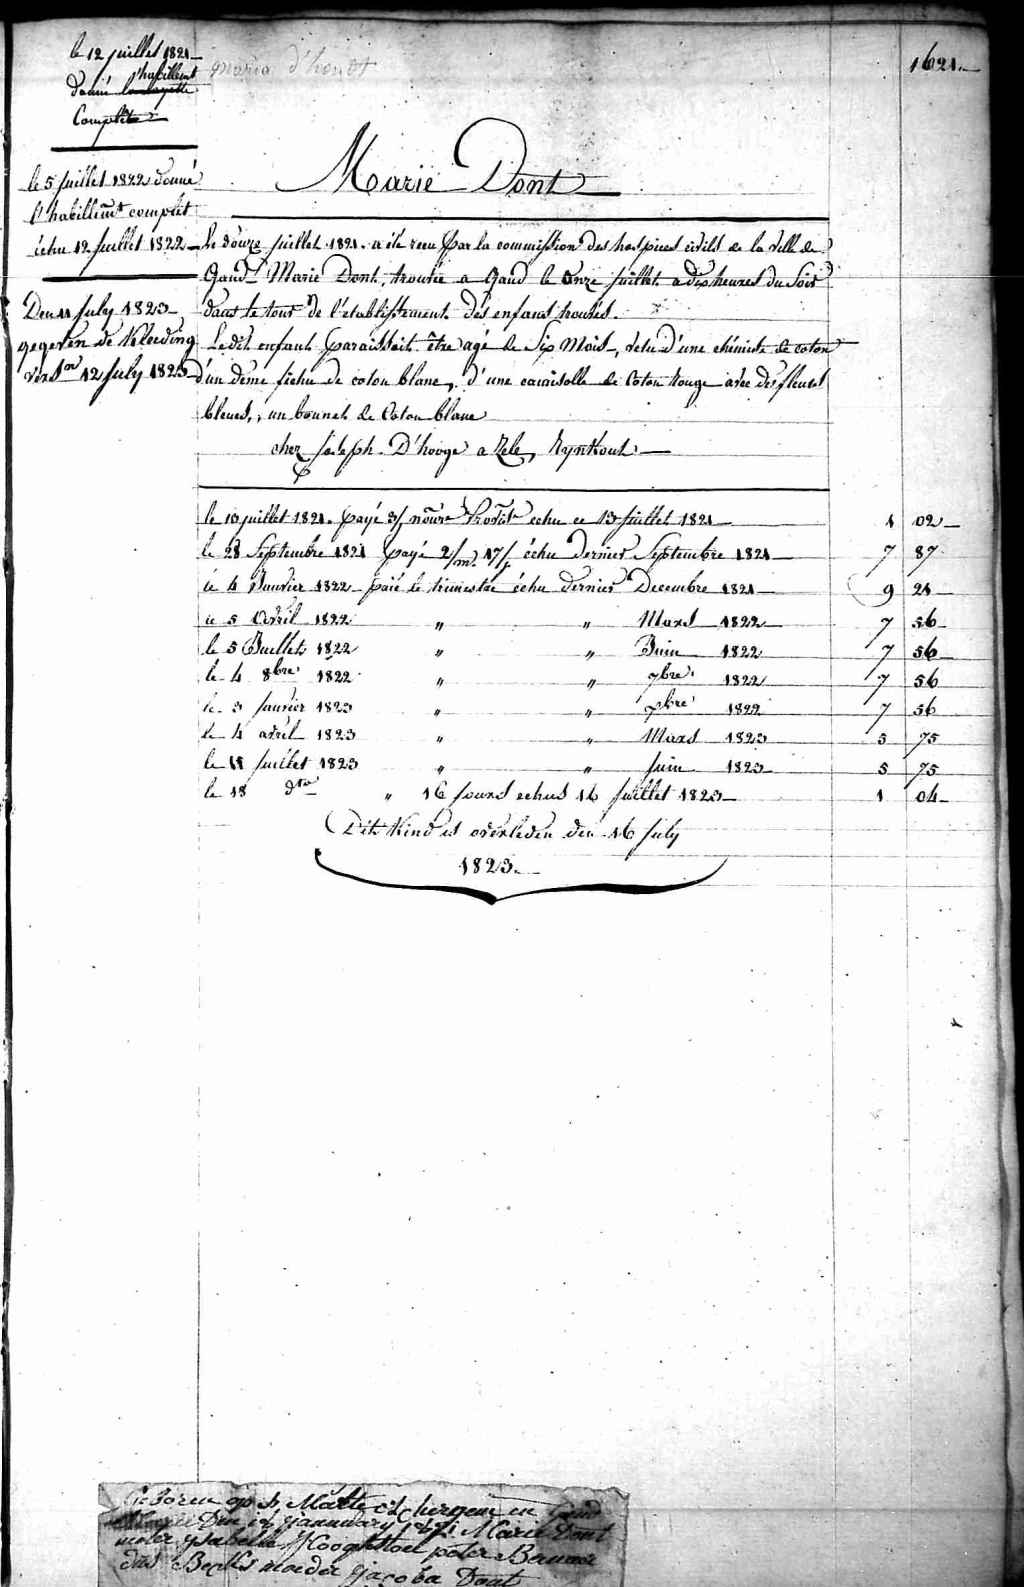 le 12 juillet 1821
l'habillemt
donné la layette
Complète
le 5 Juillet 1822 donné
l'habillemt complet
échu 12 Juillet 1822
Den 11 July 1823
gegeven de Kleeding
versn 12 July 1823
maria d'hondt
1621.
Marie Dont
Le douze juillet 1821. a été recu par la commission des hospices civils de la ville de
Gand Marie Dont, trouvée a Gand le onze juillet a dix heures du Soir
dans le tour de l'établissement des enfans trouvés.
Ledit enfant paraissait être agé de Six Mois, vetu d'une chemise de coton
d'un deme fichu de coton blanc, d'une camisolle de Coton Rouge avec des fleurs
bleues, un bonnet de Coton blanc
chez Joseph D'hooge a Zele,
le 10 juillet 1821. payé échu ce 13 juillet 1821 1 02
le 28 Septembre 1821 payé 2/m. 17/j échu dernier Septembre 1821 7 87
le 4 Janvier 1822 payé le trimestre échu dernier Decembre 1821 9 21
le 5 Avril 1822 " " Mars 1822 7 56
le 5 Juillet 1822 " " Juin 1822 7 56
le 4 8bre 1822 " " 7bre 1822 7 56
le 3 janvier 1823 " " 1822 7 56
le 4 avril 1823 " " Mars 1823 5 75
le 11 Juillet 1823 " " Juin 1823 5 75
le 18 dto " 16 jours echus 16 Juillet 1823 1 04
Dit Kind is overleden den 16 July
1823.
Geboren op St Marte en Gend
Den january Marie Dont
meter ysabella Hooghstoel peter Bernar
dus Beelis moeder jacoba Dont